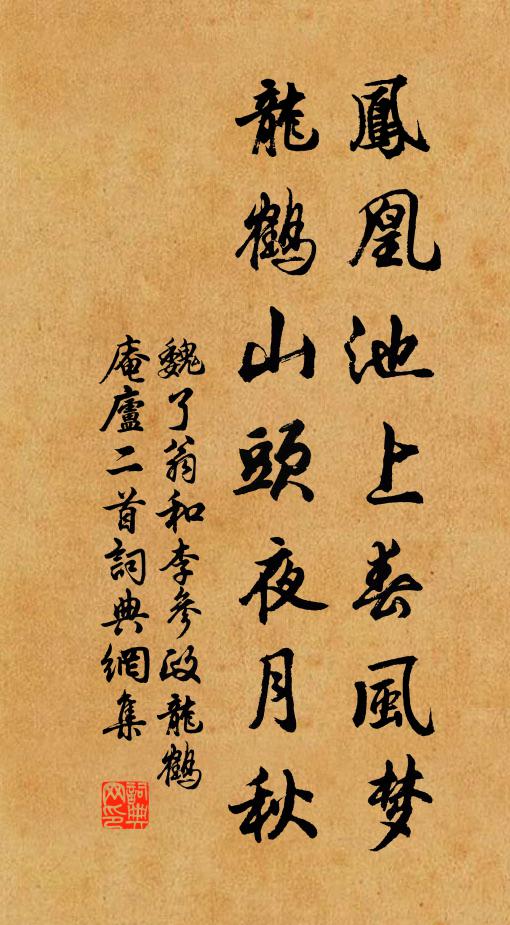 鳳凰池上春風梦
龍鶴山頭夜月秋
魏了翁和李參政龍鶴
庵廬二首詞典網集
詞典网印